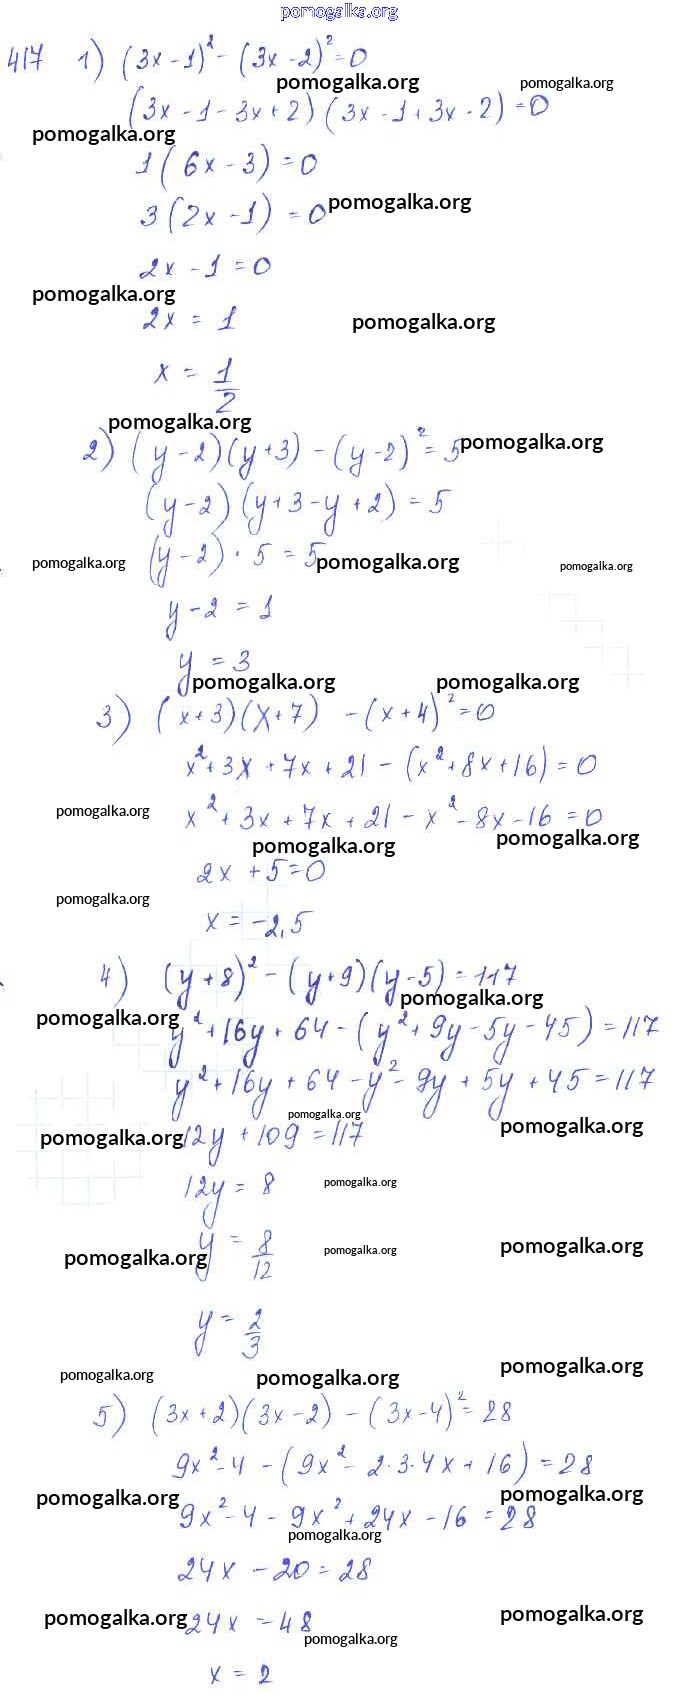 pomogalka.org
417 1) (3x - 1)² - (3x - 2)² = 0
pomogalka.org pomogalka.org
(3x - 1 - 3x + 2) (3x - 1 + 3x - 2) = 0
pomogalka.org
1 (6x - 3) = 0
3 (2x - 1) = 0 pomogalka.org
2x - 1 = 0
pomogalka.org
2x = 1 pomogalka.org
x = 1/2
pomogalka.org
2) (y - 2)(y + 3) - (y - 2)² = 5 pomogalka.org
(y - 2) (y + 3 - y + 2) = 5
pomogalka.org (y - 2) · 5 = 5 pomogalka.org pomogalka.org
y - 2 = 1
y = 3
pomogalka.org pomogalka.org
3) (x + 3)(x + 7) - (x + 4)² = 0
x² + 3x + 7x + 21 - (x² + 8x + 16) = 0
pomogalka.org x² + 3x + 7x + 21 - x² - 8x - 16 = 0
pomogalka.org pomogalka.org
2x + 5 = 0
pomogalka.org
x = -2,5
4) (y + 8)² - (y + 9)(y - 5) = 117
pomogalka.org
pomogalka.org y² + 16y + 64 - (y² + 9y - 5y - 45) = 117
y² + 16y + 64 - y² - 9y + 5y + 45 = 117
pomogalka.org pomogalka.org
pomogalka.org 12y + 109 = 117
12y = 8 pomogalka.org
y = 8/12 pomogalka.org pomogalka.org
pomogalka.org
y = 2/3
pomogalka.org pomogalka.org pomogalka.org
5) (3x + 2)(3x - 2) - (3x - 4)² = 28
9x² - 4 - (9x² - 2·3·4x + 16) = 28
pomogalka.org pomogalka.org
9x² - 4 - 9x² + 24x - 16 = 28
pomogalka.org
24x - 20 = 28
pomogalka.org 24x = 48 pomogalka.org
pomogalka.org
x = 2